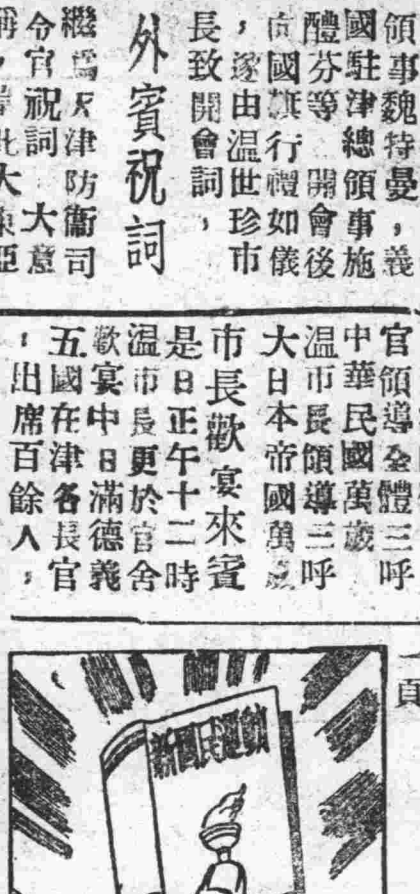 領事魏特曼，義
國駐津總領事施
醴芬等 開會後
向國旗行禮如儀
，遂由温世珍市
長致開會詞，
外賓祝詞
繼爲天津防衞司
令官祝詞 大意
大東亞
官領導全體三呼
中華民國萬歲
温市長領導三呼
大日本帝國萬歲
市長歡宴來賓
是日正午十二時
温市長更於官舍
歡宴中日滿德義
五國在津各長官
，出席百餘人，
一頁
新國民運動